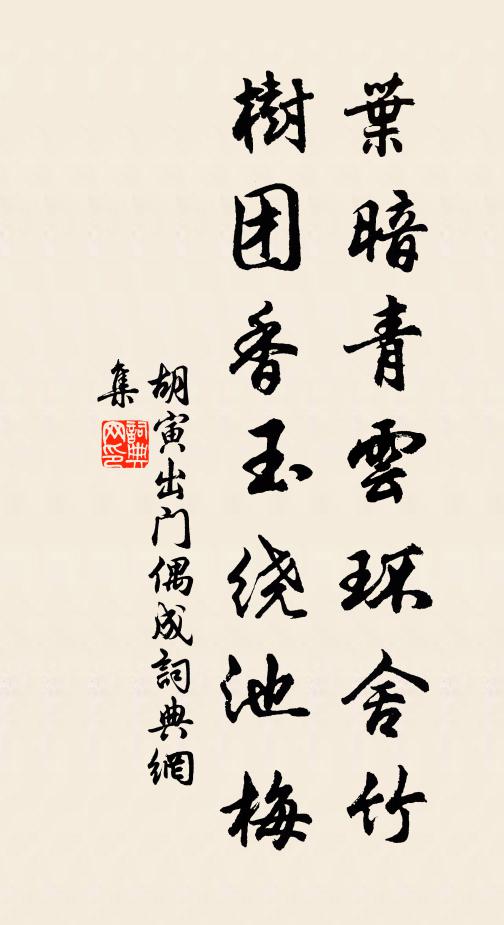 葉暗青雲环舍竹
樹团香玉绕池梅
胡寅出门偶成詞典網
集
詞典
网印